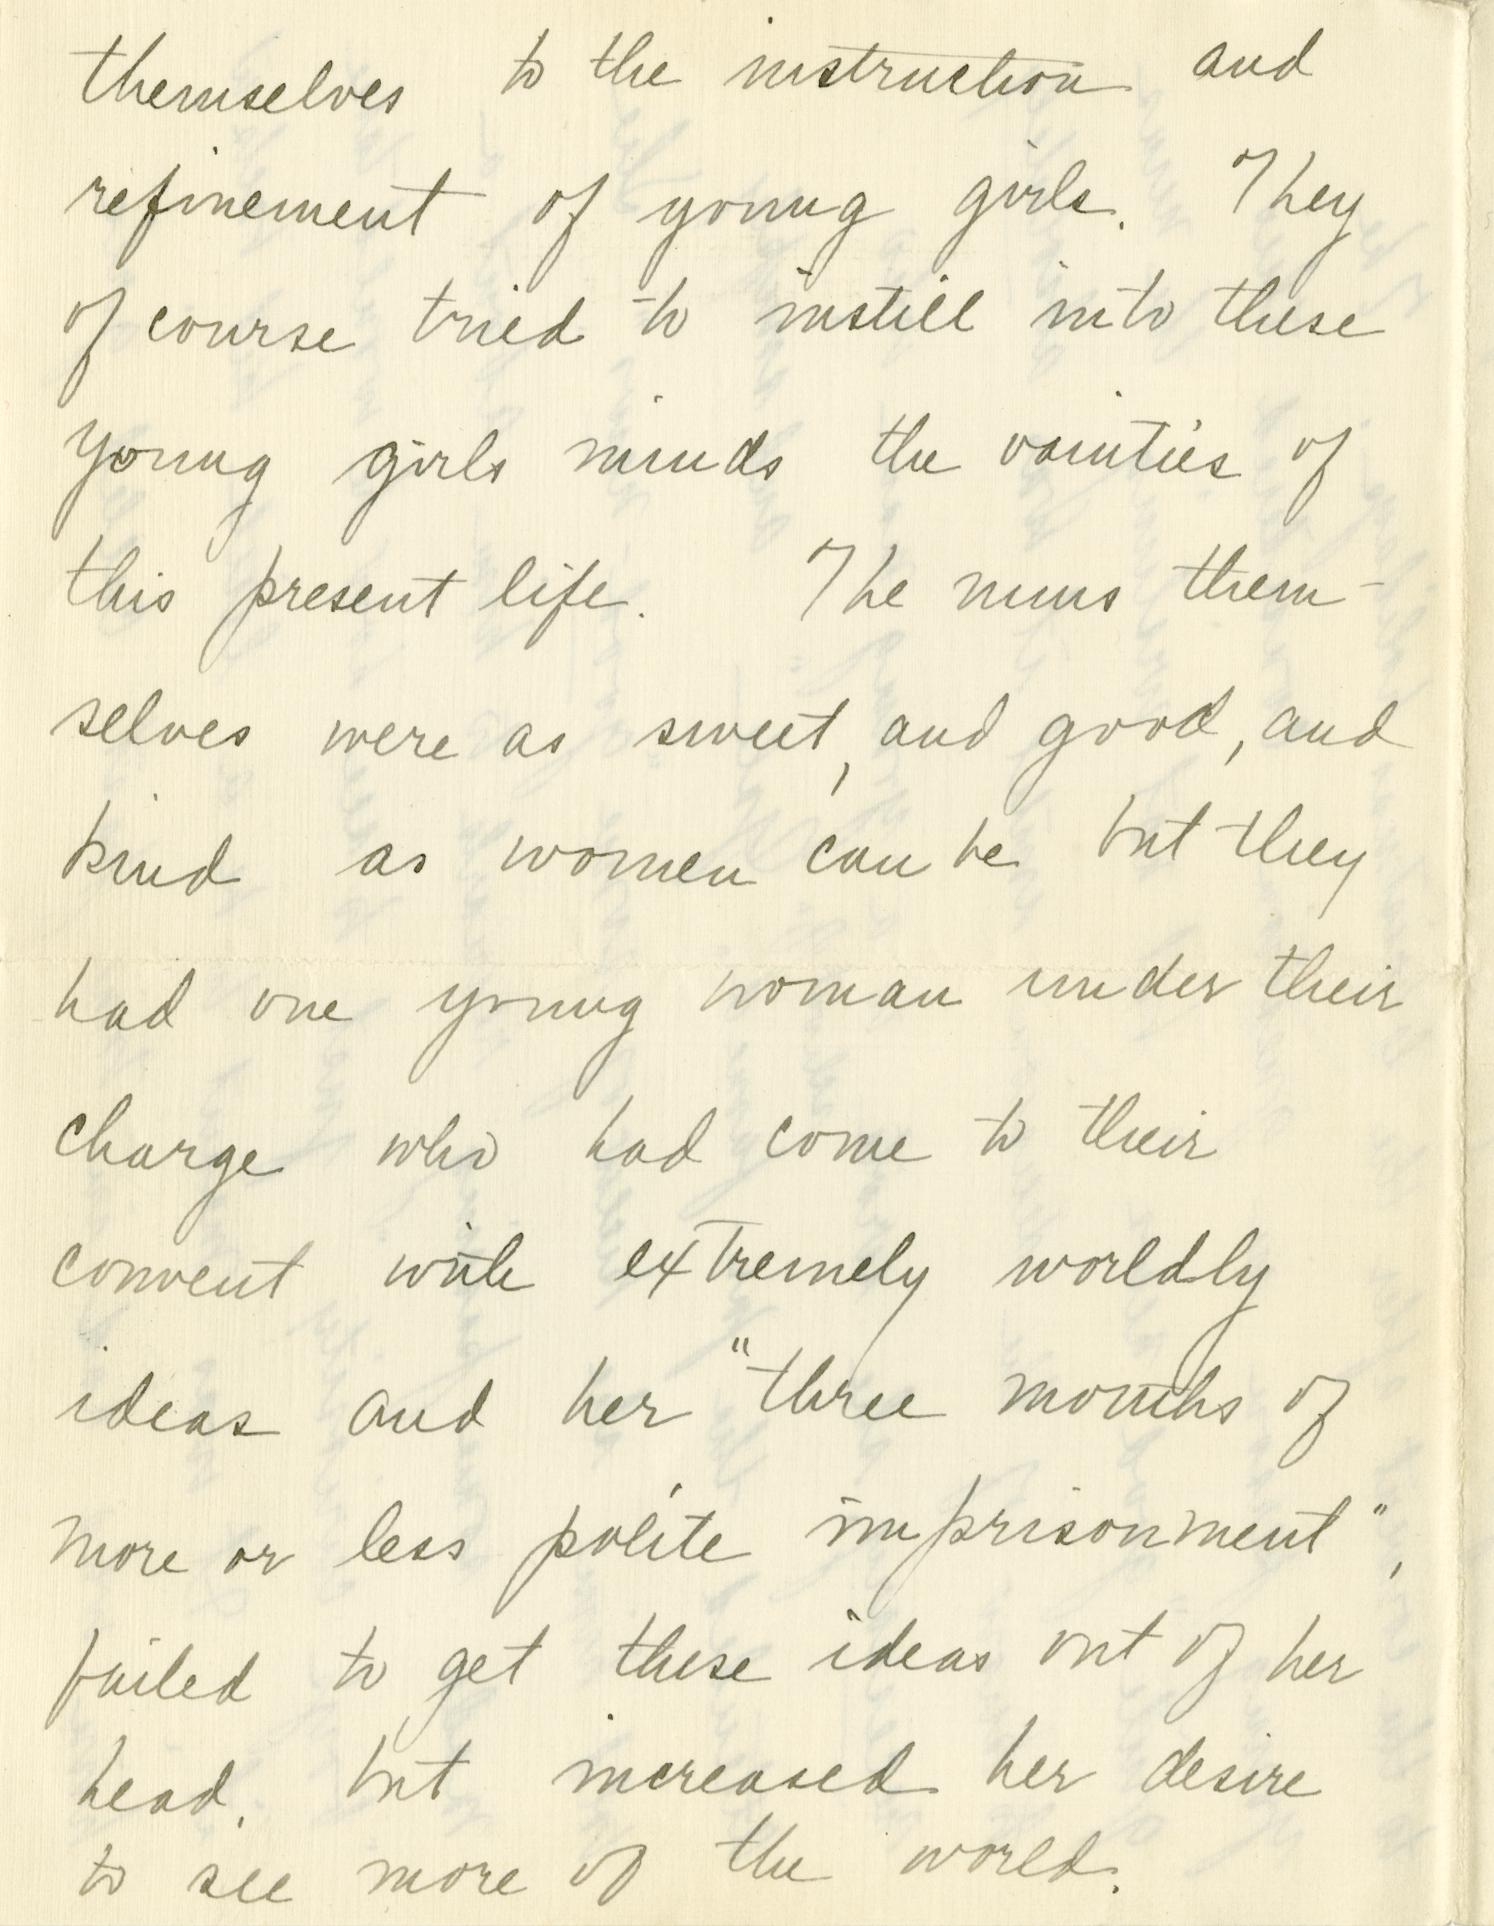 themselves to the instruction and
refinement of young girls. They
of course tried to instill into these
young girls minds the vainties of
this present life. The nuns them-
selves were as sweet, and good, and
kind as women can be but they
had one young woman under their
charge who had come to their
convent with extremely worldly
ideas and her "three months of
more or less polite imprisonment",
failed to get these ideas out of her
head, but increased her desire
to see more of the world.